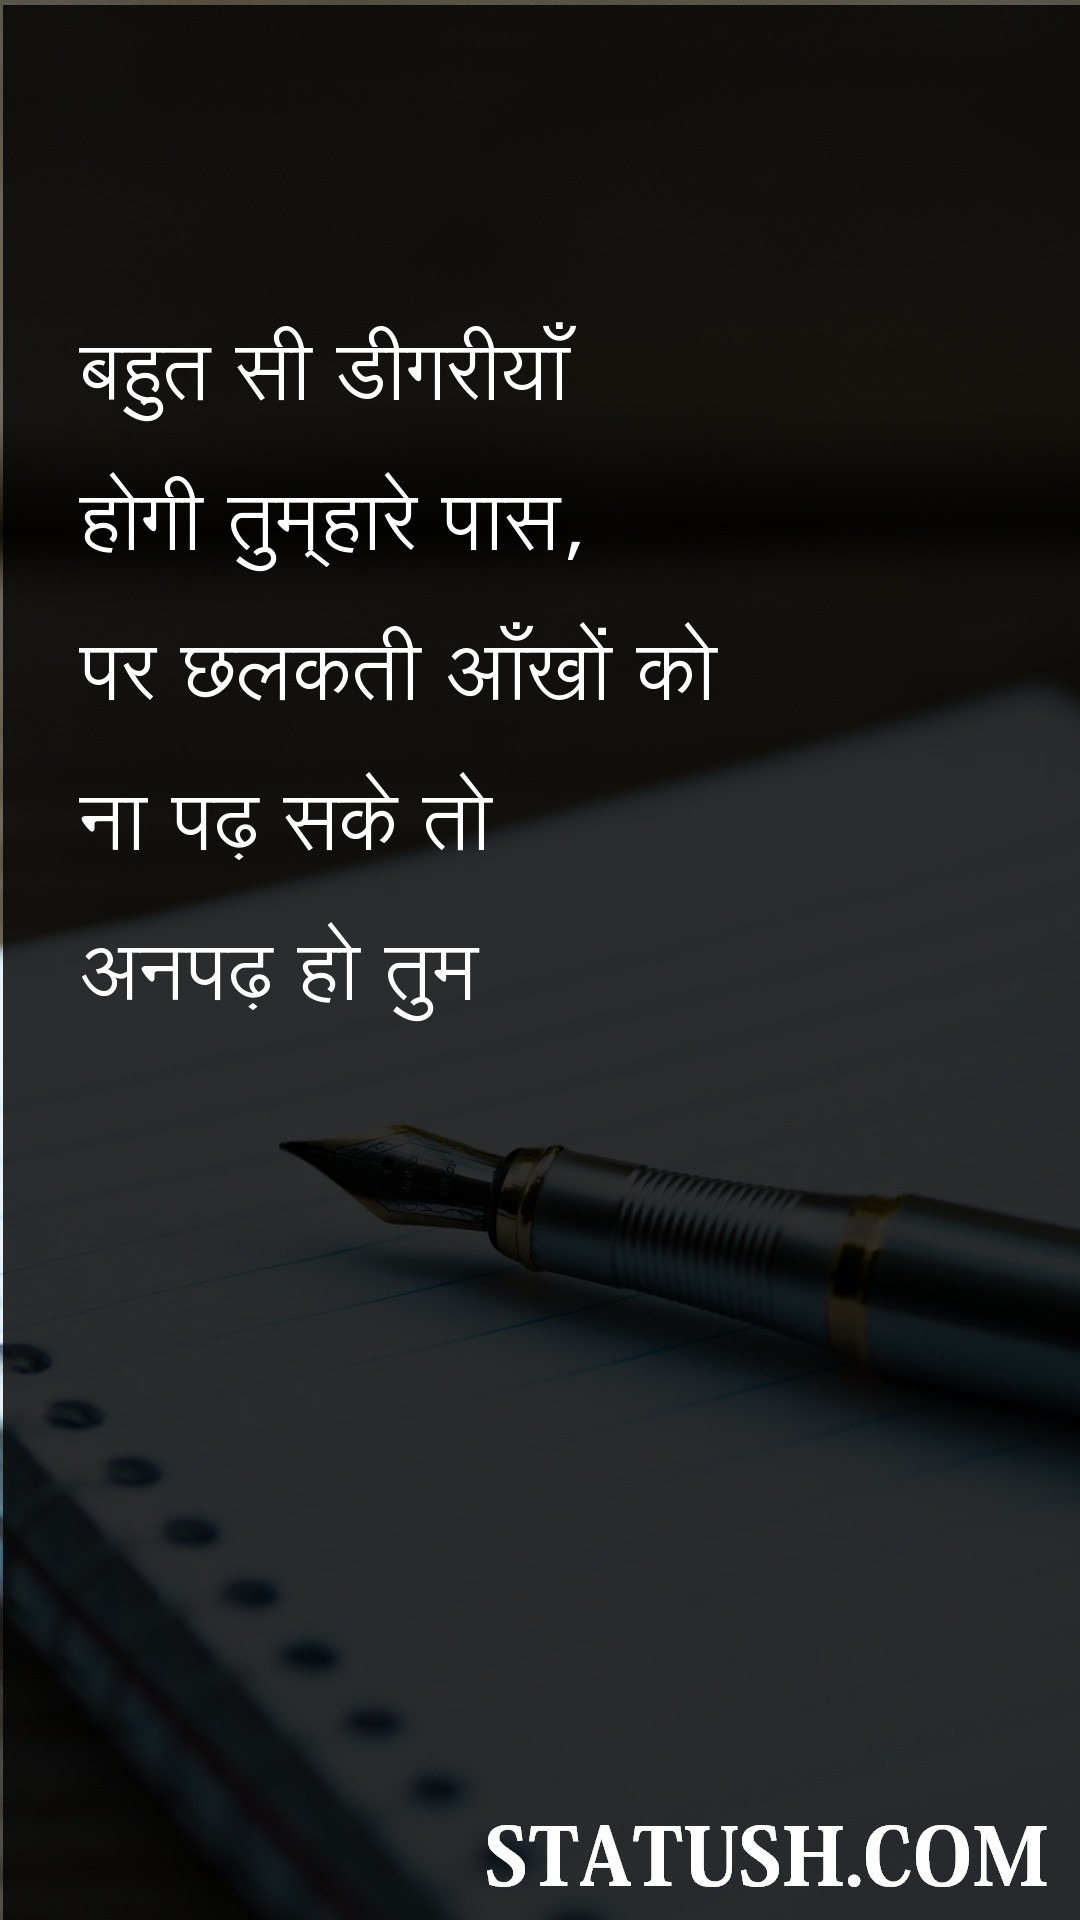 बहुत सी डीगरीयाँ
होगी तुम्हारे पास,
पर छलकती आँखों को
ना पढ़ सके तो
अनपढ़ हो तुम
STATUSH.COM